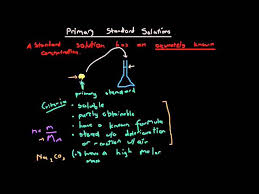 Primary Standard Solutions
A standard solution has an accurately known
concentration.
primary standard
Criteria:
• soluble
• purely obtainable
• have a known formula
• stored w/o
or reaction w/ air
(•) have a high molar
mass
n = m/Mm
Na₂CO₃